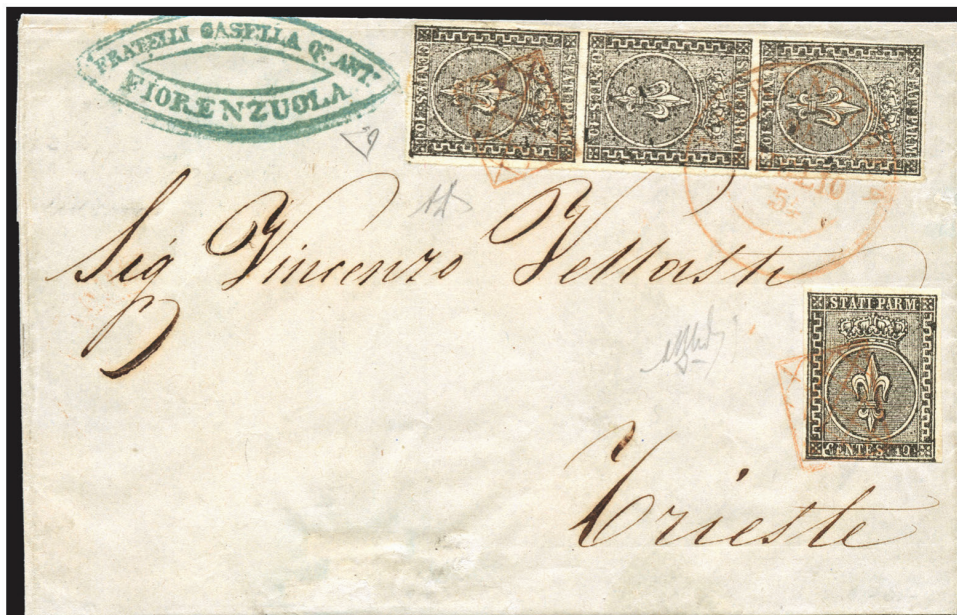 FRATELLI CASELLA Qm. ANT.
FIORENZUOLA
STATI PARM
CENTES. 10
STATI PARM
CENTES. 10
STATI PARM
CENTES. 10
54
A
Sig Vincenzo
STATI PARM
CENTES. 10
Trieste